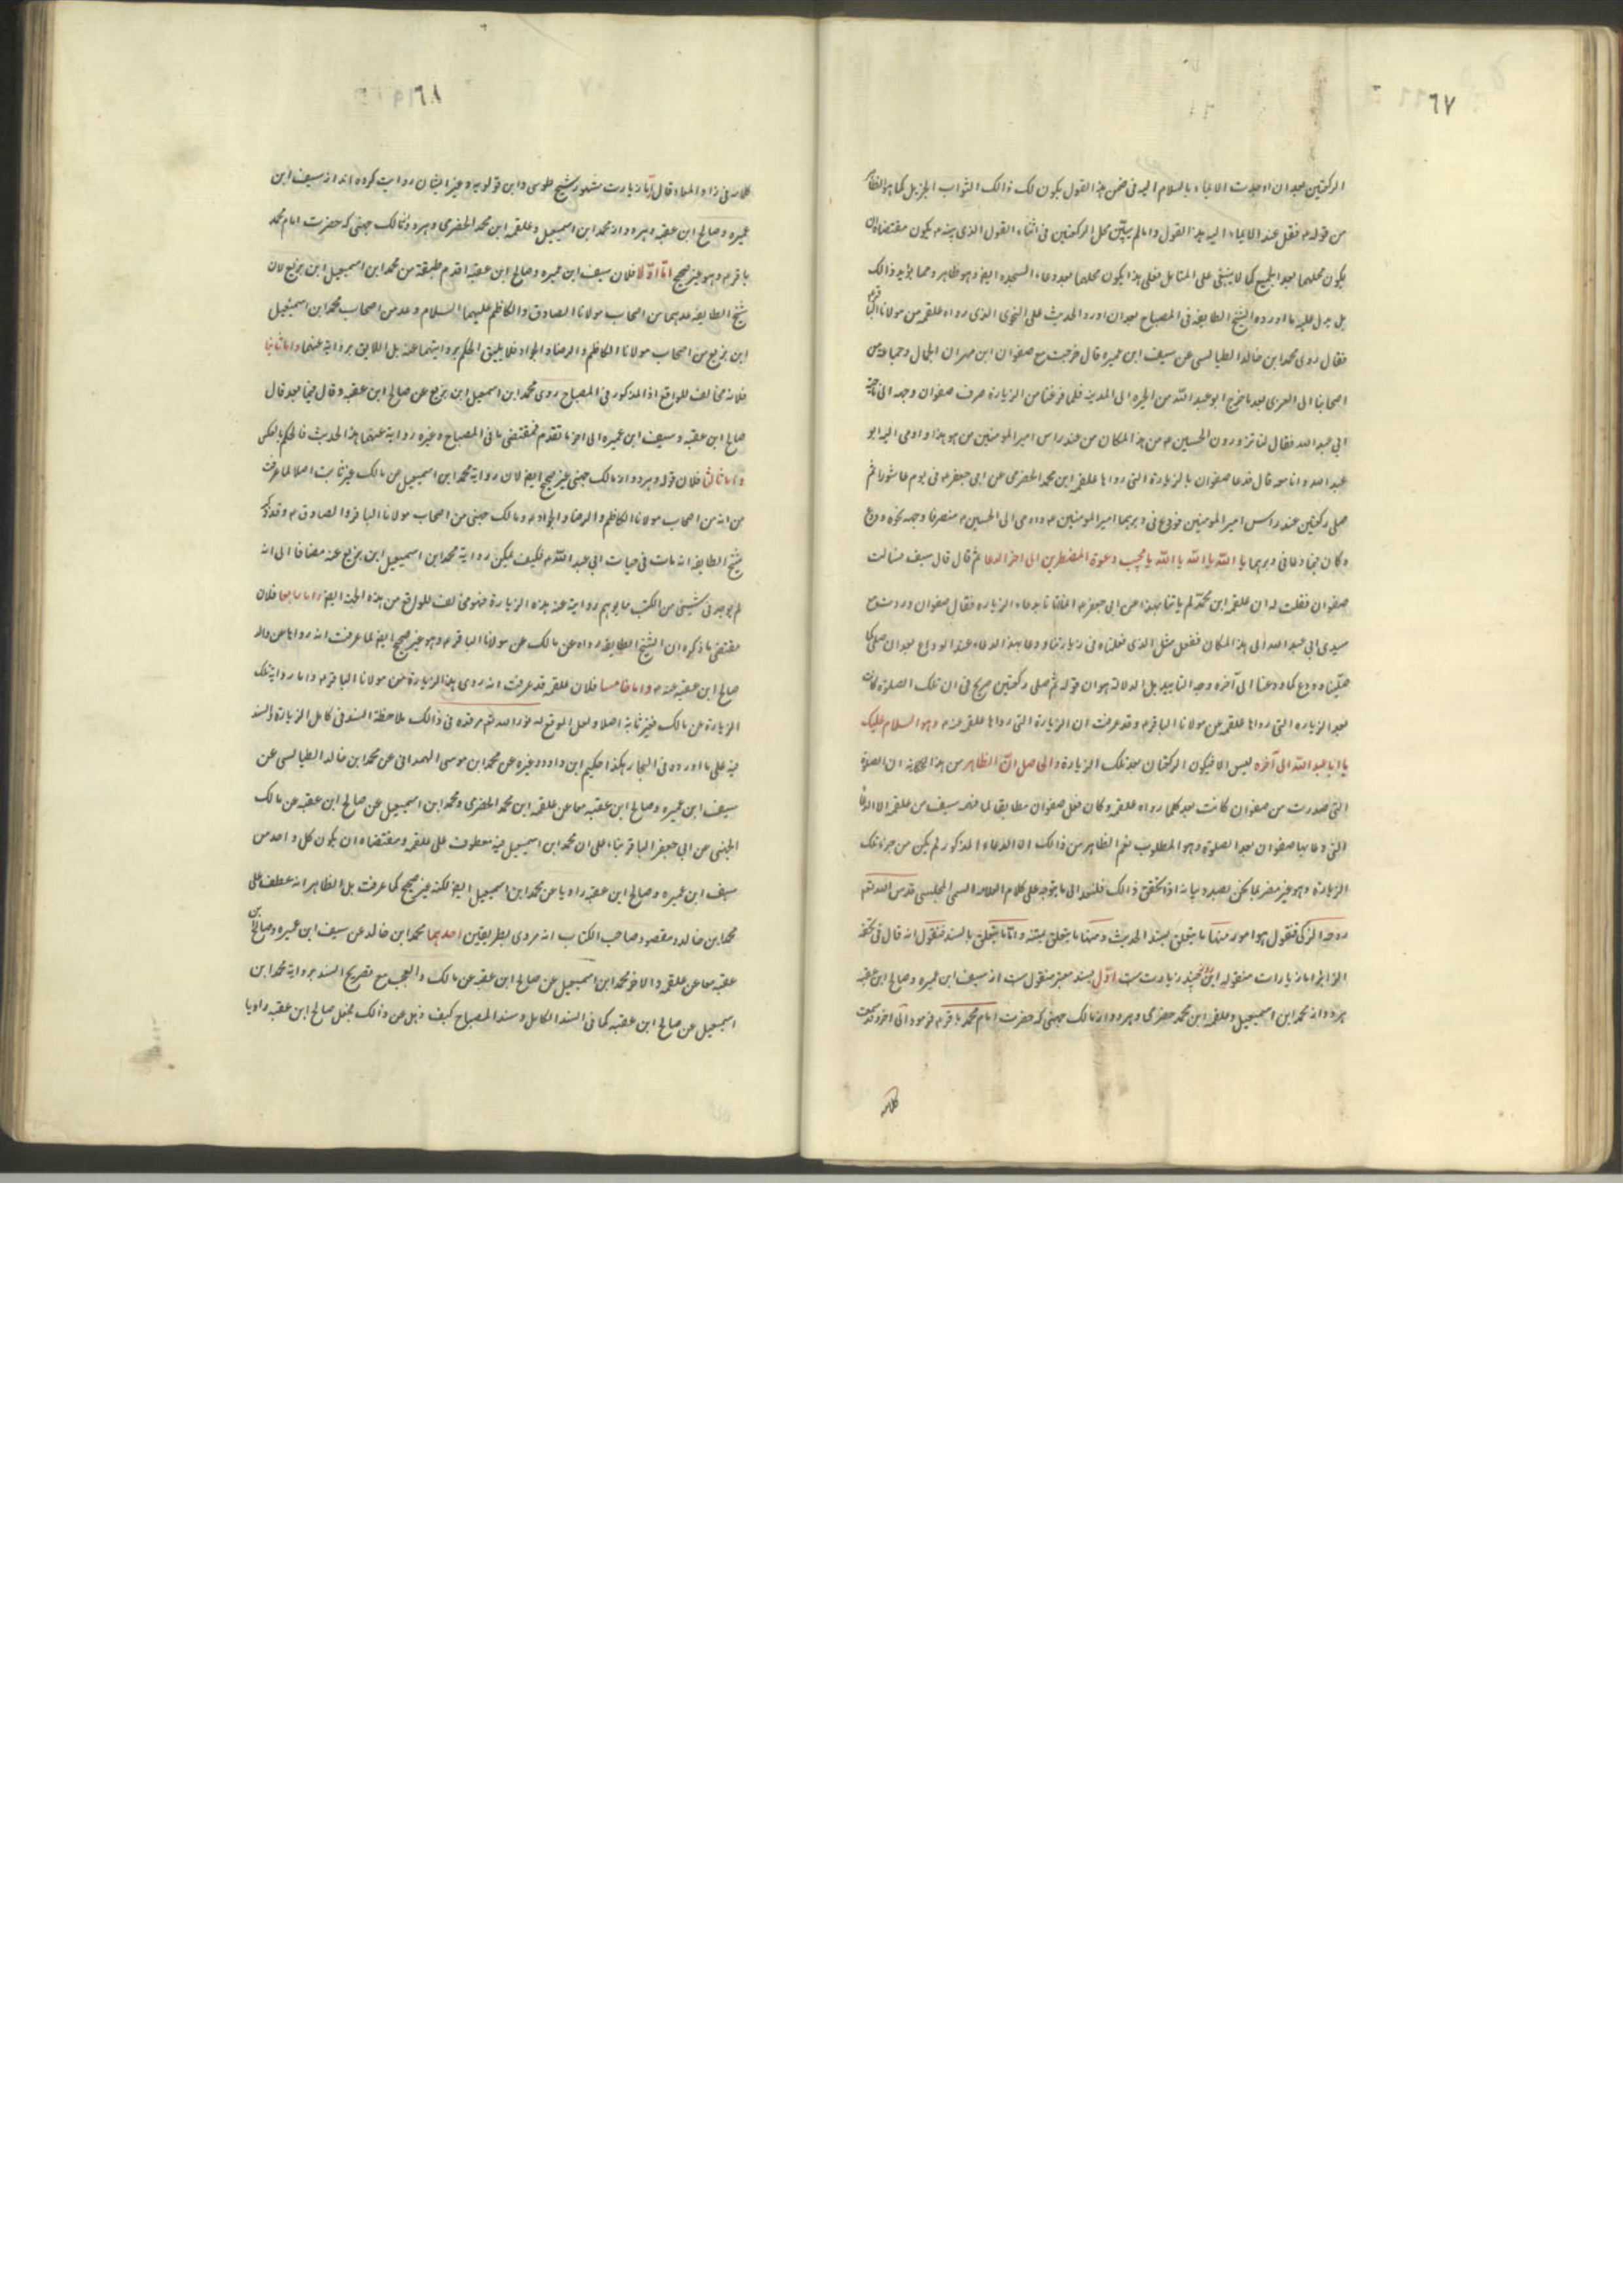 ٦٧
الركعتين بعد ان اومیت الایماء بالسلام الیه فی ضمن هذا القول یکون لک ذالک الثواب الجزیل کما هو الظاهر
من قوله ع فقل عند الایماء الیه هذا القول واما لم یبیّن محل الرکعتین فی اثناء القول الذی
یکون محلهما بعد الجمیع کما لا یبنی علی المتامل فعلی هذا یکون محلهما بعد دعاء السجده ایضا وهو ظاهر ومما یؤید ذالک
بل یدل علیه ما اورده الشیخ الطایفه فی المصباح بعد ان اورد الحدیث علی النحوی الذی رواه علقمه من مولانا الباقر ع
فقال روی محمد ابن خالد الطیالسی عن سیف ابن عمیره قال خرجت مع صفوان ابن مهران الجمال وجماعه من
اصحابنا الی الغری بعد ما خرج ابو عبد الله من الحیره الی المدینه فلما فرغنا من الزیارة صرف صفوان وجهه الی ناحیة
ابی عبد الله فقال لنا تزورون الحسین ع من هذا المکان من عند راس امیر المومنین من هو هذا واومی الیه ابو
عبد الله وانا معه قال فدعا صفوان بالزیارة التی رواها علقمه ابن محمد الحضرمی عن ابی جعفر ع فی یوم عاشورا ثم
صلی رکعتین عند راس امیر المومنین وودع فی دبرهما امیر المومنین ع واومی الی الحسین ع منصرفا وجهه نحوه وودع
وکان فیما دعا فی دبرهما یا الله یا الله یا الله یا مجیب دعوة المضطرین الی اخر الدعا ثم قال قال سیف فسالت
صفوان فقلت له ان علقمه ابن محمد لم یاتنا بهذا عن ابی جعفر ع انما اتانا بدعاء الزیاره فقال صفوان وردت مع
سیدی ابی عبد الله الی هذا المکان ففعل مثل الذی فعلناه فی زیارتنا ودعا بهذا الدعاء عند الوداع بعد ان صلی کما
صلّینا وودع کما ودعنا الی آخره وجه التایید بل الدلاله هو ان قوله ثم صلی رکعتین صریح فی ان تلک الصلوة کانت
بعد الزیاره التی رواها علقمه عن مولانا الباقر ع وقد عرفت ان الزیارة التی رواها علقمه عنه ع وهو السلام علیک
یا ابا عبد الله الی آخره لیس الا فیکون الرکعتان بعد تلک الزیارة والحاصل انّ الظاهر من هذا الحکایه ان الصلوة
التی صدرت من صفوان کانت بعد کلما رواه علقمه وکان فعل صفوان مطابقا لما فهمه سیف من علقمه الا الدعا
التی دعا بها صفوان بعد الصلوة وهو المطلوب نعم الظاهر من ذالک ان الدعاء المذکور لم یکن من جزء تلک
الزیارة وهو غیر مضر بما نحن بصدد بیانه اذا تحقق ذالک فلنعد الی ما یتوجه علی کلام العلامه السمی المجلسی قدس الله تعالی
روحه الزکی فنقول هو امور منها ما یتعلق بسند الحدیث ومنها ما یتعلق بمتنه واما ما یتعلق بالسند فنقول انه قال فی تحفة
الزایر اما زیارات منقوله این روز چند زیارت ست اوّل بسند معتبر منقول ست از سیف ابن عمیره وصالح ابن عقبه
هر دو از محمد ابن اسمعیل وعلقمه ابن محمد حضرمی وهر دو از مالک جهنی که حضرت امام محمد باقر ع فرمود الی اخره
کلامه
٦٨
کلامه فی زاد المعاد قال امّا زیارت مشهور شیخ طوسی وابن قولویه وغیر ایشان روایت کرده اند از سیف ابن
عمیره وصالح ابن عقبه وهر دو از محمد ابن اسمعیل وعلقمه ابن محمد الحضرمی وهر دو از مالک جهنی که حضرت امام محمد
باقر ع وهو غیر صحیح امّا اوّلا فلان سیف ابن عمیره وصالح ابن عقبه اقدم طبقه من محمد ابن اسمعیل ابن بزیع لان
شیخ الطایفه عدهما من اصحاب مولانا الصادق والکاظم علیهما السلام وعد من اصحاب محمد ابن اسمعیل
ابن بزیع من اصحاب مولانا الکاظم والرضا والجواد فلا یلیق الحکم بروایتهما عنه بل اللایق بروایة عنهما واما ثانیا
فلانه مخالف للواقع اذ المذکور فی المصباح روی محمد ابن اسمعیل ابن بزیع عن صالح ابن عقبه وقال فیما بعد قال
صالح ابن عقبه وسیف ابن عمیره الی اخر ما تقدم فمقتضی ما فی المصباح وغیره روایة عنهما هذا الحدیث فالحکم بالعکس
واما ثالثا فلان قوله وهر دو از مالک جهنی غیر صحیح ایضا لان روایة محمد ابن اسمعیل عن مالک غیر ثابت اصلا لما عرفت
من انه من اصحاب مولانا الکاظم والرضا والجواد ع ومالک جهنی من اصحاب مولانا الباقر والصادق ع وقد ذکر
شیخ الطایفه انه مات فی حیات ابی عبد الله ع فکیف یمکن روایة محمد ابن اسمعیل ابن بزیع عنه مضافا الی انه
لم یوجد فی شیئی من الکتب ما یوهم روایة عنه هذه الزیارة فهو مخالف للواقع من هذه الجهة ایضا واما رابعا فلان
مقتضی ما ذکره ان الشیخ الطایفه رواه عن مالک عن مولانا الباقر ع وهو غیر صحیح ایضا لما عرفت انه رواها عن والد
صالح ابن عقبه عنه ع واما خامسا فلان علقمه قد عرفت انه روی هذا الزیارة من مولانا الباقر ع واما روایة تلک
الزیارة عن مالک فغیر ثابته اصلا ولعل الموقع له نور الله تعالی مرقده فی ذالک ملاحظة السند فی کامل الزیارة والسند
فیه علی ما اورده فی البحار هکذا حکیم ابن داود وغیره عن محمد ابن موسی الهمدانی عن محمد ابن خالد الطیالسی عن
سیف ابن عمیره وصالح ابن عقبه معا عن علقمه ابن محمد الحضرمی ومحمد ابن اسمعیل عن صالح ابن عقبه عن مالک
الجهنی عن ابی جعفر الباقر بناء علی ان محمد ابن اسمعیل فیه معطوف علی علقمه ومقتضاه ان یکون کل واحد من
سیف ابن عمیره وصالح ابن عقبه راویا عن محمد ابن اسمعیل ایضا لکنه غیر صحیح کما عرفت بل الظاهر انه عطف علی
محمد ابن خالد ومقصود صاحب الکتاب انه مروی بطریقین احدهما محمد ابن خالد عن سیف ابن عمیره وصالح ابن
عقبه معا عن علقمه والاخر محمد ابن اسمعیل عن صالح ابن عقبه عن مالک والعجب مع تصریح السند بروایة محمد ابن
اسمعیل عن صالح ابن عقبه کما فی السند الکامل وسند المصباح کیف ذهل عن ذالک فجعل صالح ابن عقبه راویا